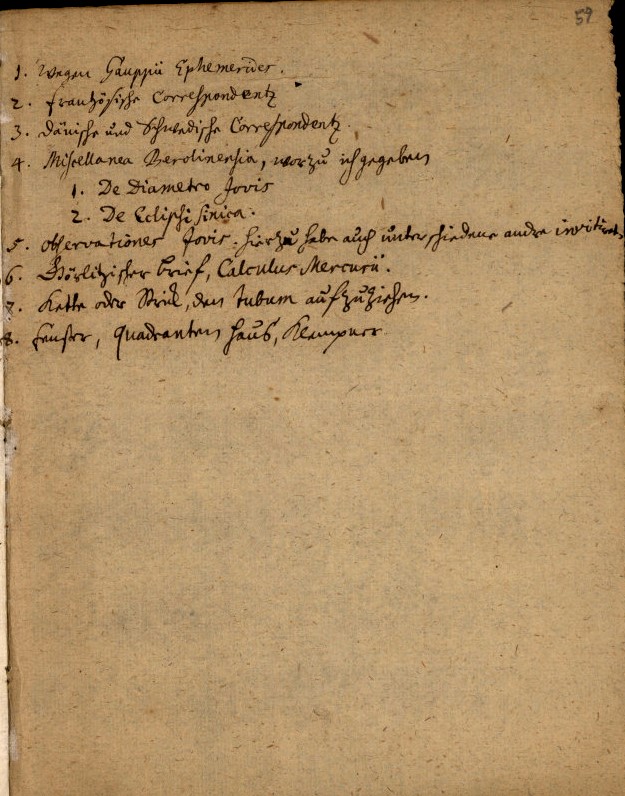 59
1. Wegen Gauppii Ephemerides.
2. Frantzösische Correspondentz
3. Dänische und Schwedische Correspondentz.
4. Miscellanea Berolinensia, worzu ich gegeben
1. De Diametro Jovis
2. De Eclipsi sinica.
5. Observationes Jovis. hierzu habe auch unterschiedene andre invitiret.
6. Görlitzischer brief, Calculus Mercurii.
7. Kette oder Strick, den tubum aufzuziehen.
8. Fenster, Quadranten haus, Klempner.